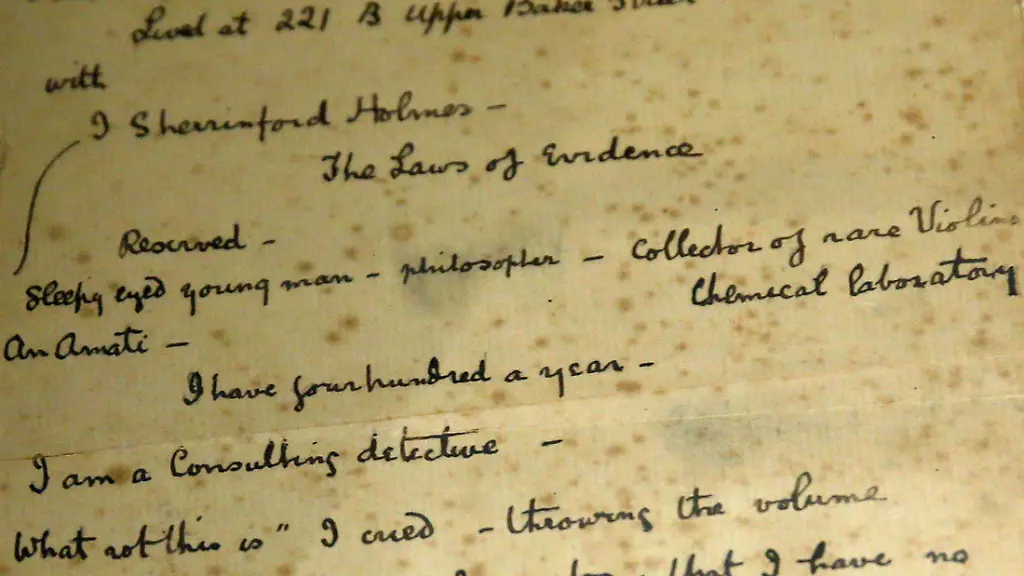 Lived at 221 B Upper Baker Street
with
I Sherrinford Holmes -
The Laws of Evidence
Reserved -
Sleepy eyed young man - philosopher - Collector of rare Violins
An Amati -
Chemical laboratory
I have four hundred a year -
I am a Consulting detective -
What rot this is" I cried - throwing the volume
that I have no